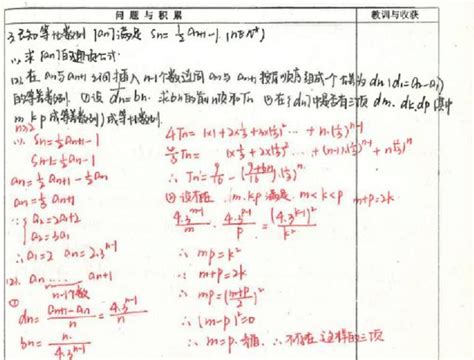 问题与积累
教训与收获
3.已知等比数列{an}满足 Sn=½an+1-1.(n∈N*)
(1).求{an}的通项公式.
(2).在an与an+1之间插入n-1个数连同an与an+1按原顺序组成一个公差为dn(d1=a2-a1)
的等差数列. ①设 dn=bn. 求bn的前n项和Tn ②在{dn}中是否存在三项dm.dk.dp(其中
m k p成等差数列)成等比数列.
n≥2
(1). Sn=½an+1-1
Sn-1=½an-1
an=½an+1-½an
an=⅓an+1
∴{a2=2a1+2
a2=3a1
∴a1=2 an=2·3ⁿ⁻¹
(2). an……an+1
n-1个数
①
dn=(an+1-an)/n=4·3ⁿ⁻¹/n
bn=n/(4·3ⁿ⁻¹)
4Tn=1×1+2×⅓+3×(⅓)²+…+n·(⅓)ⁿ⁻¹
(1×⅓+2×(⅓)²…+(n-1)(⅓)ⁿ⁻¹+n(⅓)ⁿ
∴Tn=9/16-
②设存在 m.k.p满足 m<k<p m+p=2k
∴mp=k²
∴m+p=2k
∴mp=((m+p)/2)²
∴(m-p)²=0
∴m=p 矛盾.∴不存在这样的三项